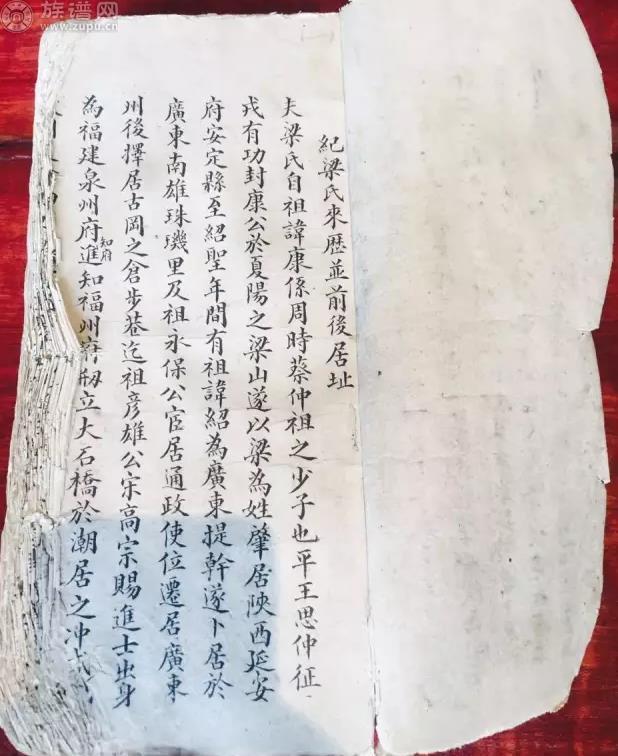 族谱网
www.zupu.cn
紀梁氏來歷並前後居址
夫梁氏自祖諱康係周時蔡仲祖之少子也平王思仲征
戎有功封康公於夏陽之梁山遂以梁為姓肇居陝西延安
府安定縣至紹聖年間有祖諱紹為廣東提幹遂卜居於
廣東南雄珠璣里及祖永保公宦居通政使位遷居廣東
州後擇居古岡之倉步巷迄祖彥雄公宋高宗賜進士出身
為福建泉州府知府進知福州府刱立大石橋於潮居之冲